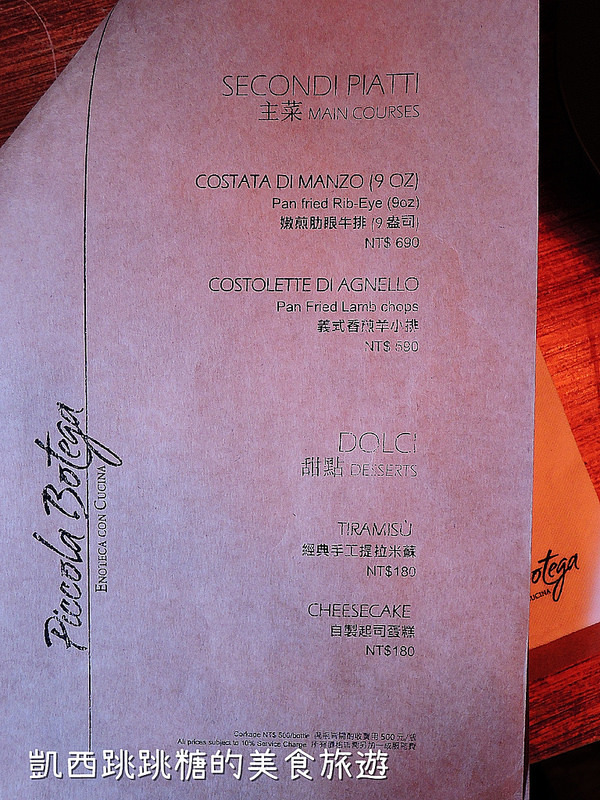 SECONDI PIATTI
主菜 MAIN COURSES
COSTATA DI MANZO (9 OZ)
Pan fried Rib-Eye (9oz)
嫩煎肋眼牛排 (9 盎司)
NT$ 690
COSTOLETTE DI AGNELLO
Pan Fried Lamb chops
義式香煎羊小排
NT$ 590
DOLCI
甜點 DESSERTS
TIRAMISÙ
經典手工提拉米蘇
NT$180
CHEESECAKE
自製起司蛋糕
NT$180
Corkage NT$ 500/bottle 500 元/瓶
All prices subject to 10% Service Charge
Piccola Botega
ENOTECA CON CUCINA
otega
UCINA
凱西跳跳糖的美食旅遊